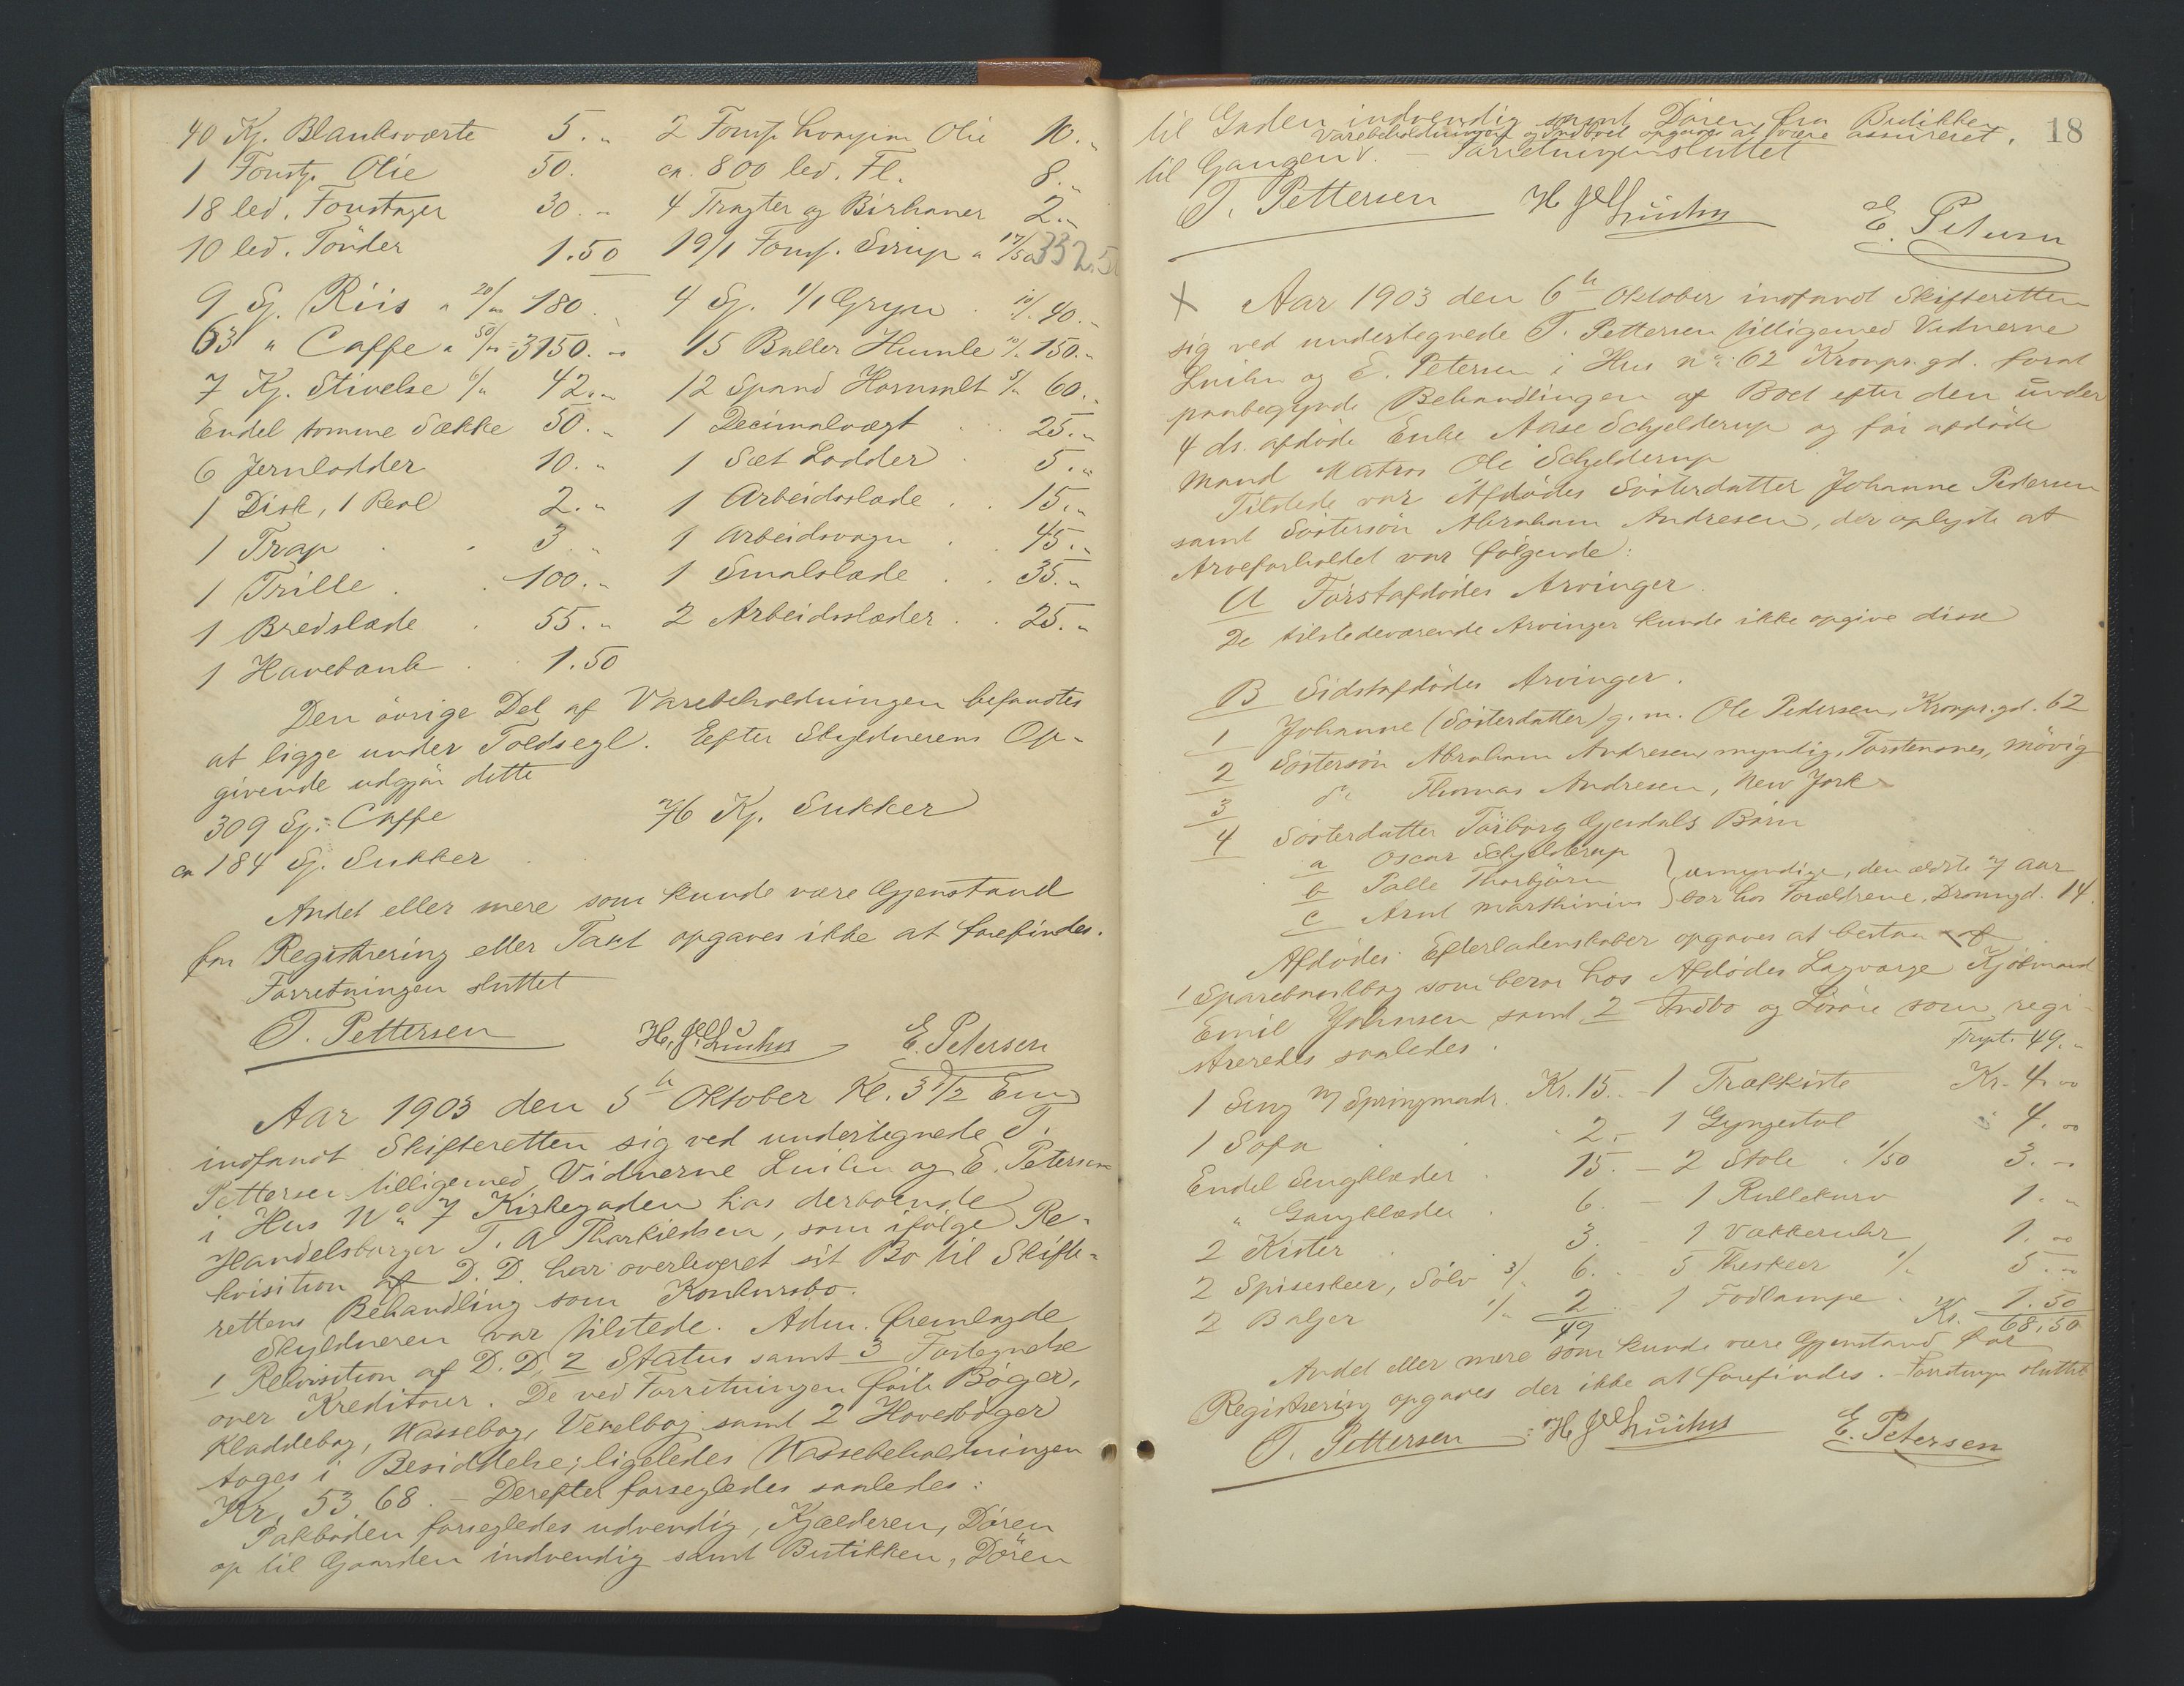 40 Kg. Blanksværte 5. „ 2 Foustg. Compen Olie 10. „
1 Foustg. Olie 50. ca. 800 led. Fl. 8. „
18 led. Foustager 30. „ 4 Tragter og Birhaner 2. „
10 led. Tönder 1.50 19/1 Foustg. Sirup a 17/50 332.50
9 Sj. Riis a 20/„ 180. 4 Sj. 1/1 Gryn 10/„ 40. „
63 „ Caffe a 50/„ = 3150. „ 15 Baller Humle 10/„ 150. „
7 Kg. Stivelse 6/„ 42. „ 12 Spand Hornmalt 5/„ 60. „
Endel tomme Sække 50. „ 1 Decimalvægt 25. „
6 Jernlodder 10. „ 1 Sæt Lodder 5. „
1 Disk, 1 Reol 2. „ 1 Arbeidsslæde 15. „
1 Trap 3. „ 1 Arbeidsvogn 45. „
1 Trille 100. „ 1 Smalslæde 35. „
1 Bredslæde 55. „ 2 Arbeidsslæder 25. „
1 Havebænk 1.50
Den övrige Del af Varebeholdningen befandtes
at ligge under Toldsegl. Efter Skyldnerens Op-
givende udgjör dette
309 Sj. Caffe 76 Kg. Sukker
ca 184 Sj. Sukker
Andet eller mere som kunde være Gjenstand
for Registrering eller Taxt opgaves ikke at forefindes.
Forretningen sluttet
T. Pettersen E. Petersen
Aar 1903 den 5te Oktober Kl. 3 1/2 Em
indfandt Skifteretten sig ved undertegnede T.
Pettersen tilligemed Vidnerne Luihn og E. Petersen
i Hus No 7 Kirkegaden hos derboende
Handelsborger T. A Thorkildsen, som ifölge Re-
kvisition af D. D. har overleveret sit Bo til Skifte-
rettens Behandling som Konkursbo.
Skyldneren var tilstede. Adm. fremlagde
1 Rekvisition af D. D. 2 Status samt 3 Fortegnelse
over Kreditorer. De ved Forretningen förte Böger,
Kladdebog, Kassebog, Vexelbog samt 2 Hovedböger
toges i Besiddelse; ligeledes Kassebeholdningen
Kr. 53.68. — Derefter forsegledes saaledes:
Pakboden forsegledes udvendig, Kjælderen, Dören
op til Gaarden indvendig samt Butikken, Dören
18
til Gaden indvendig samt Dören fra Butikken
Varebeholdningen og Indboet opgaves at være assureret.
til Gangen v. — Forretningen sluttet
T. Pettersen E. Petersen
X Aar 1903 den 6te Oktober indfandt Skifteretten
sig ved undertegnede T. Pettersen tilligemed Vidnerne
Luihn og E. Petersen i Hus No 62 Kronpr.gd. forat
paabegynde Behandlingen af Boet efter den under
4 ds. afdöde Enke Aase Schjelderup og för afdöde
Mand Matros Ole Schjelderup
Tilstede var Afdödes Sösterdatter Johanne Pedersen
samt Söstersön Abraham Andresen, der oplyste at
Arveforholdet var fölgende:
A Förstafdödes Arvinger.
De tilstedeværende Arvinger kunde ikke opgive disse
B Sidstafdödes Arvinger.
1 Johanne (Sösterdatter) g. m. Ole Pedersen, Kronpr.gd. 62
2 Söstersön Abraham Andresen, myndig, Torstensnes, Mövig
3 do Thomas Andresen, New York
4 Sösterdatter Torborg Gjendals Börn
a Oscar Schjelderup
b Palle Thorbjörn } umyndige, den ældste 7 Aar
c Arnt Marthinius } bor hos Forældrene, Dronngd. 14.
Afdödes Efterladenskaber opgaves at bestaa af
1 Sparebankbog som beror hos Afdödes Lagværge Kjöbmand
Emil Johnsen samt 2 Indbo og Lösöre som regi-
streredes saaledes.
Trpt. 49. „
1 Seng m Springmadr. Kr. 15. - 1 Trækkiste Kr. 4. „
1 Sofa 2. - 1 Gyngestol 4. „
Endel Sengklæder 15. - 2 Stole 1/50 3. „
„ Gangklæder 6. - 1 Rullekurv 1. „
2 Kister 3. - 1 Vækkeruhr 1. „
2 Spiseskeer, Sölv 3/„ 6. 5 Theskeer 1/„ 5. „
2 Baljer 1/„ 2 1 Fodlampe 1.50
49 Kr. 68,50
Andet eller mere som kunde være Gjenstand for
Registrering opgaves der ikke at forefindes. — Forretningen sluttet
T. Pettersen E. Petersen